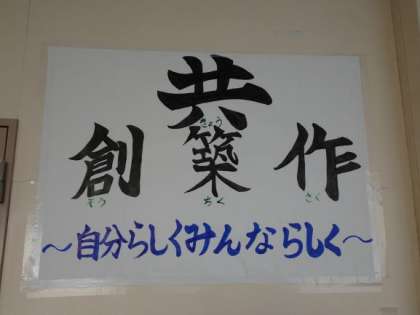 共
きょう
創築作
そう ちく さく
～自分らしくみんならしく～